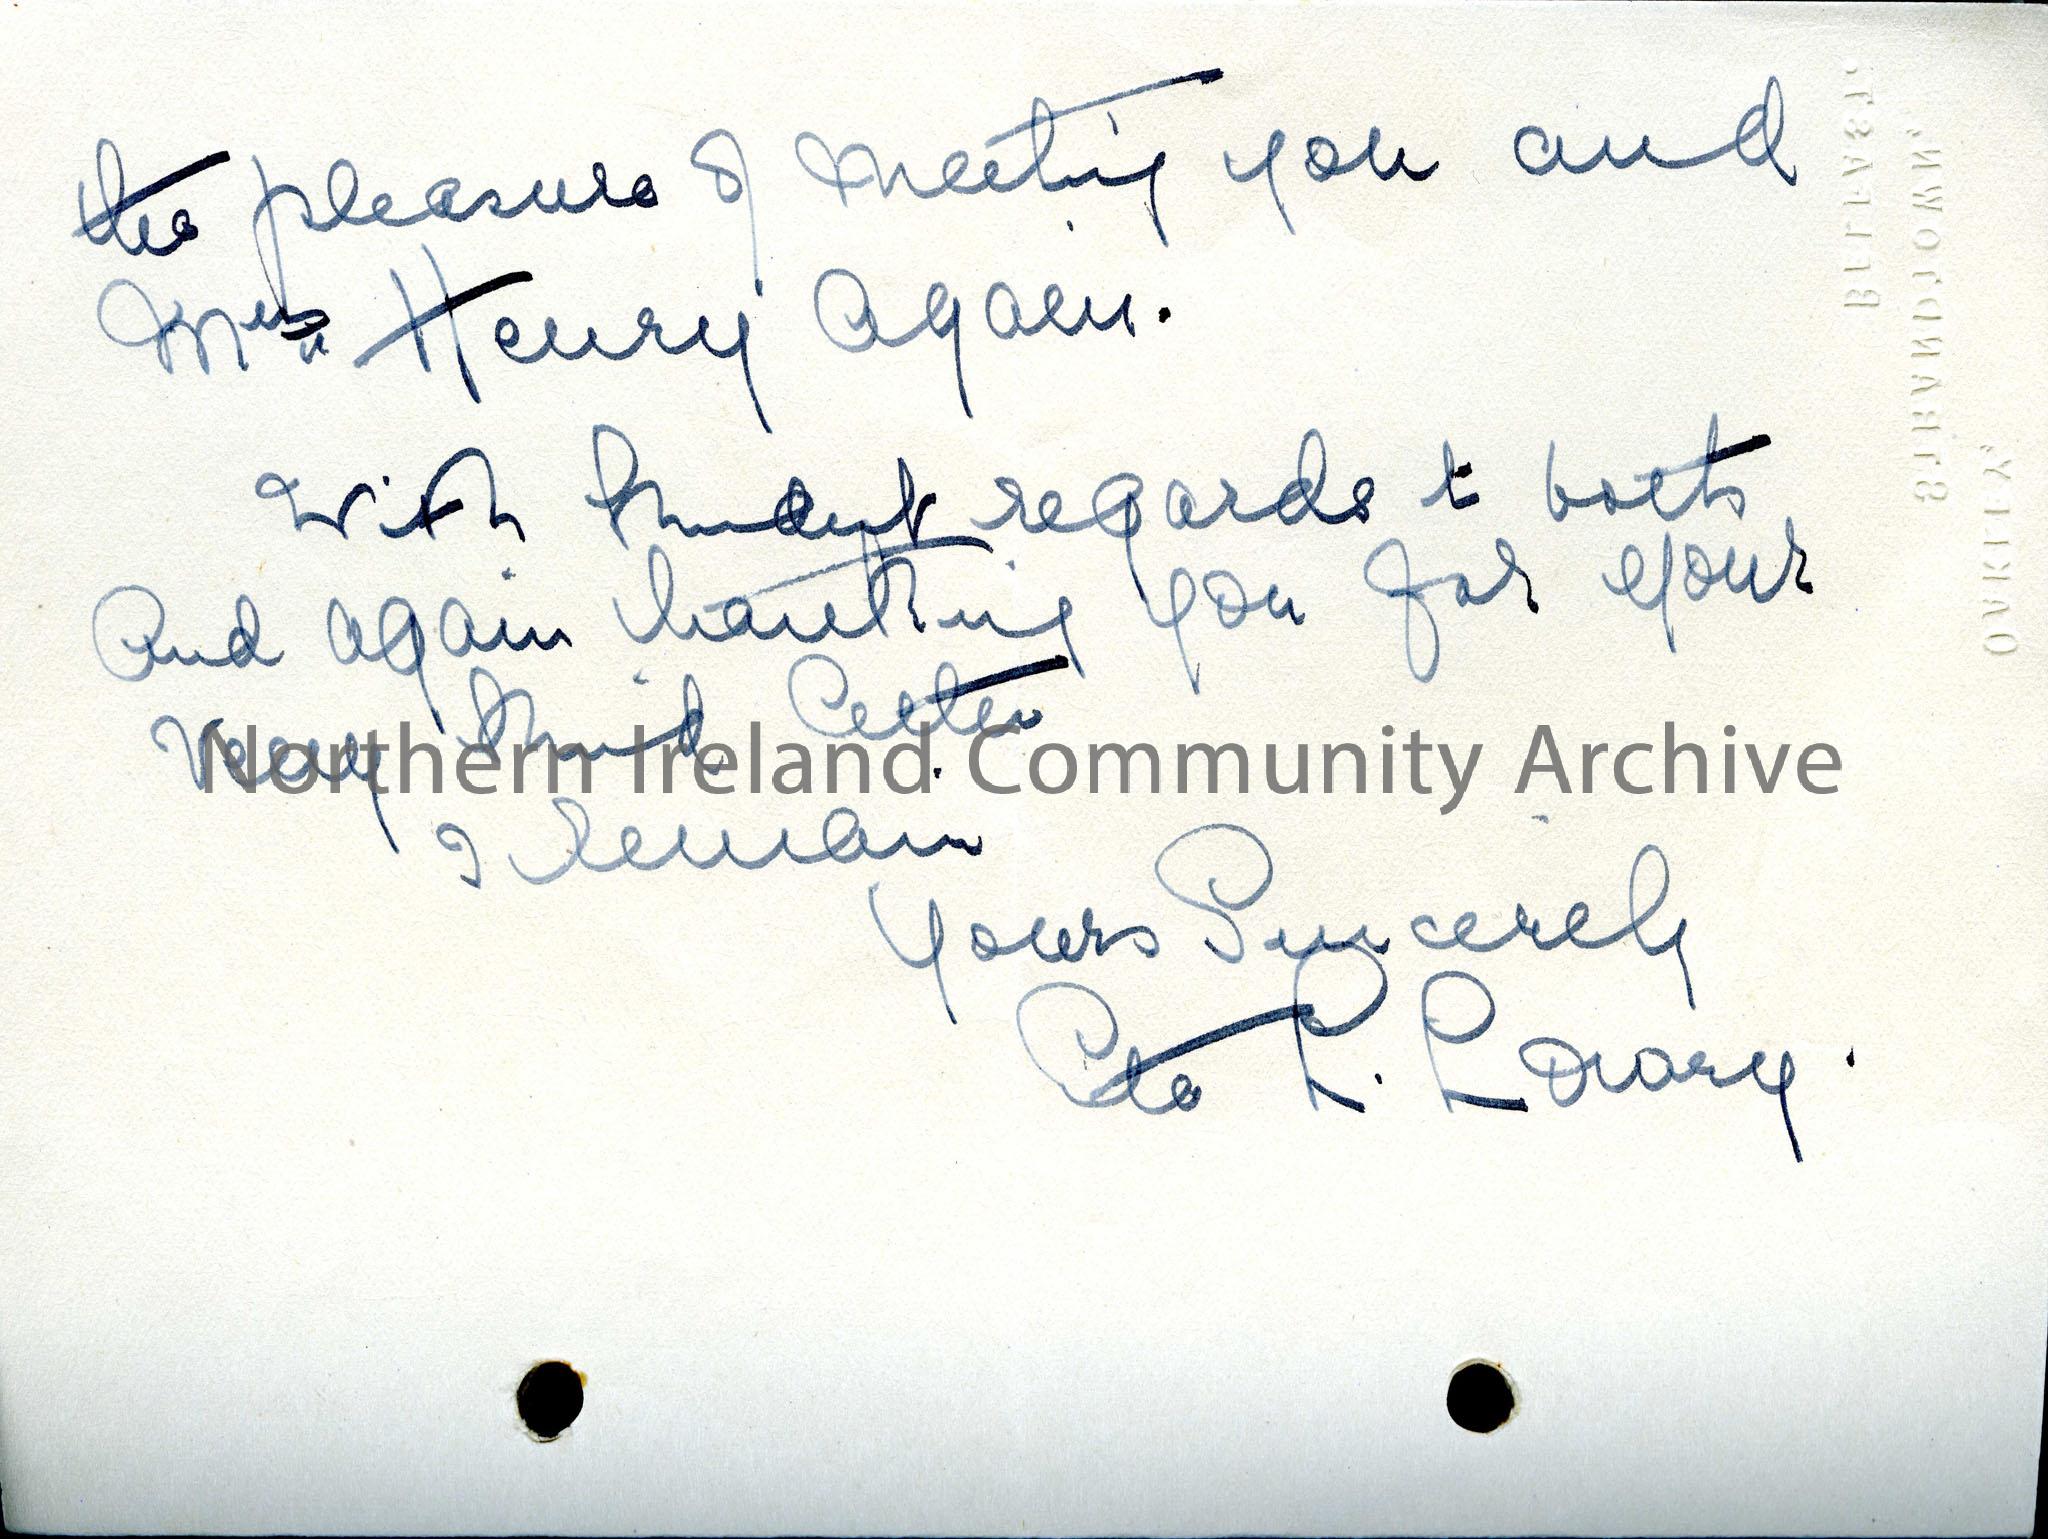 the pleasure of meeting you and
Mrs Henry again.
With kindest regards to both
And again thanking you for your
Very kind letter.
Northern Ireland Community Archive
I remain
Yours Sincerely
L. Lowry.
OAKLEY,
STRANDTOWN,
BELFAST.